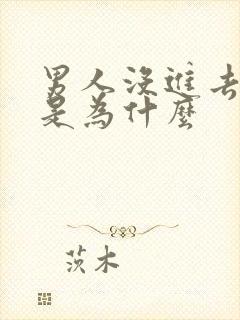 男人没進去
是為什麼
茨木